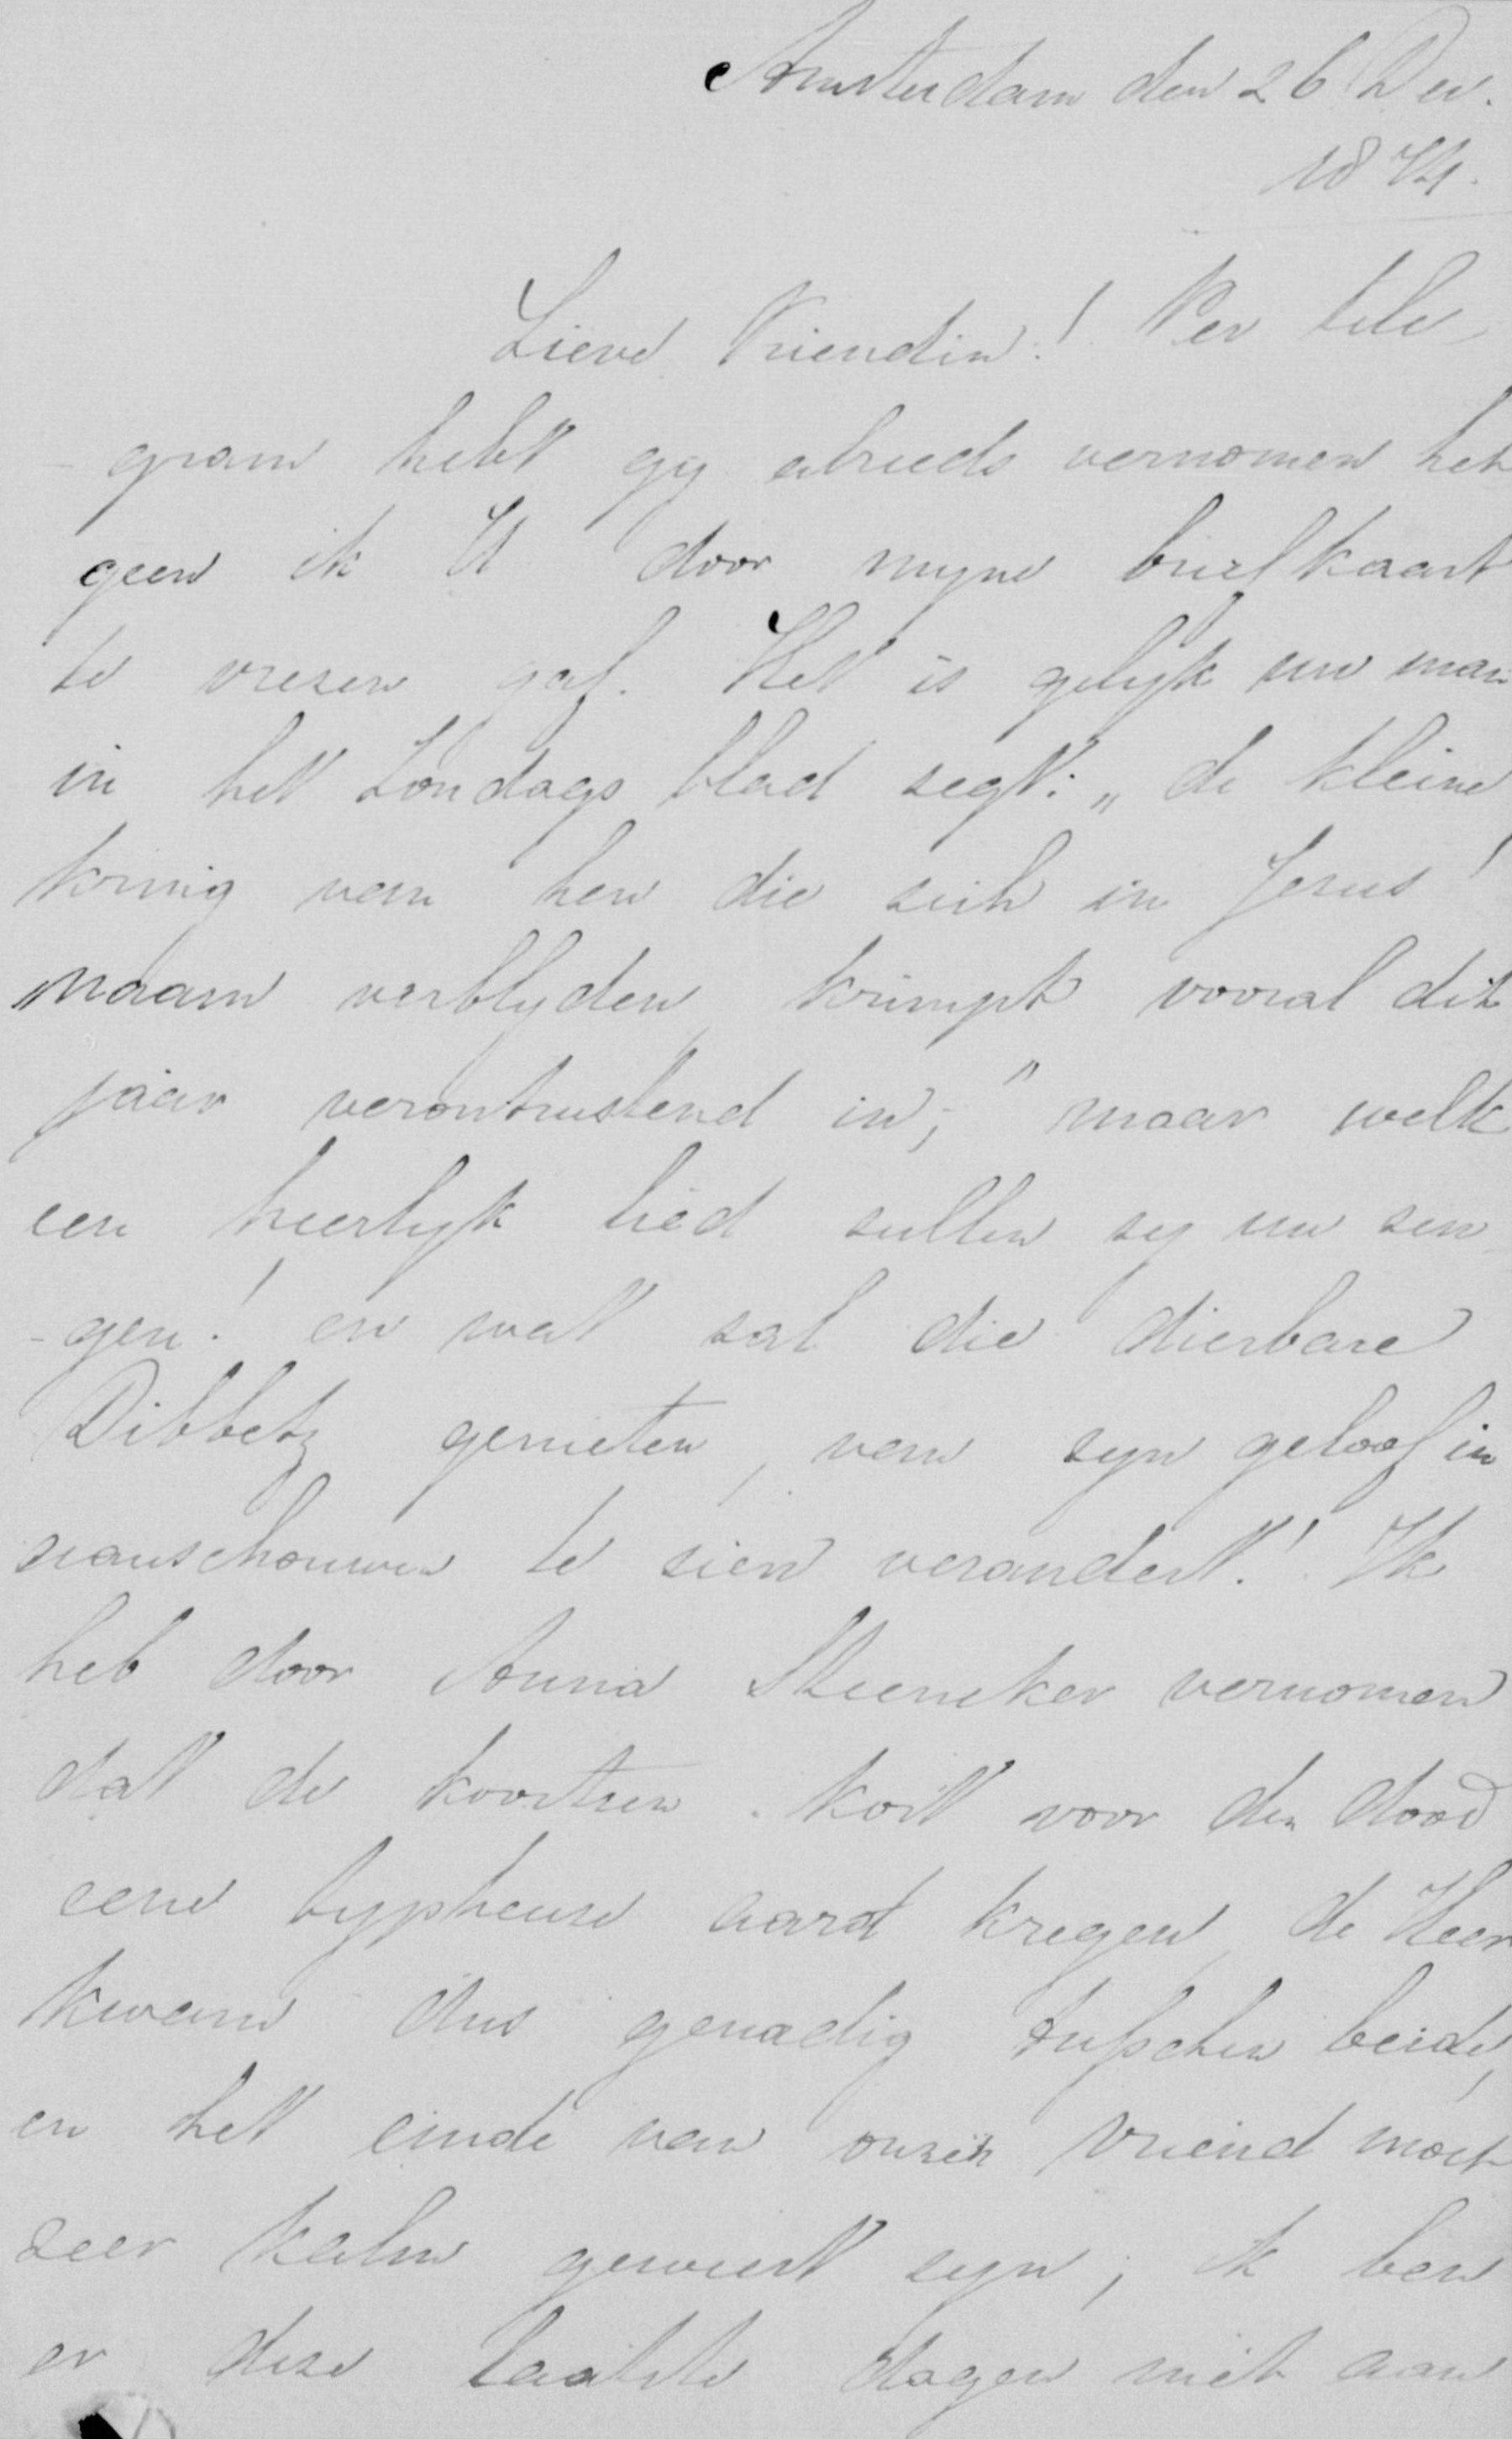 Amsterdam den 26 Dec.
1874.
Lieve Vriendin! Per tele-
-gram hebt gy alreeds vernomen het
geen ik U door myne briefkaart
te vrezen gaf. Het is gelyk uw man
in het Zondags blad zegt: „de kleine
kring van hen die zich in Jezus'
„naam verblyden, krimpt vooral dit
jaar verontrustend in;" maar welk
een heerlyk lied zullen zy nu zin-
-gen! en wat zal die dierbare
Dibbetz genieten, van zyn geloof in
aanschouwen te zien verandert! Ik
heb door Anna vernomen
dat de koortsen kort voor den dood
eene typheuse aard kregen, de Heer
kwam dus genadig tusschen beide,
en het einde van onzen vriend moet
zeer kalm geweest zyn; ik ben
er deze laatste dagen niet aan